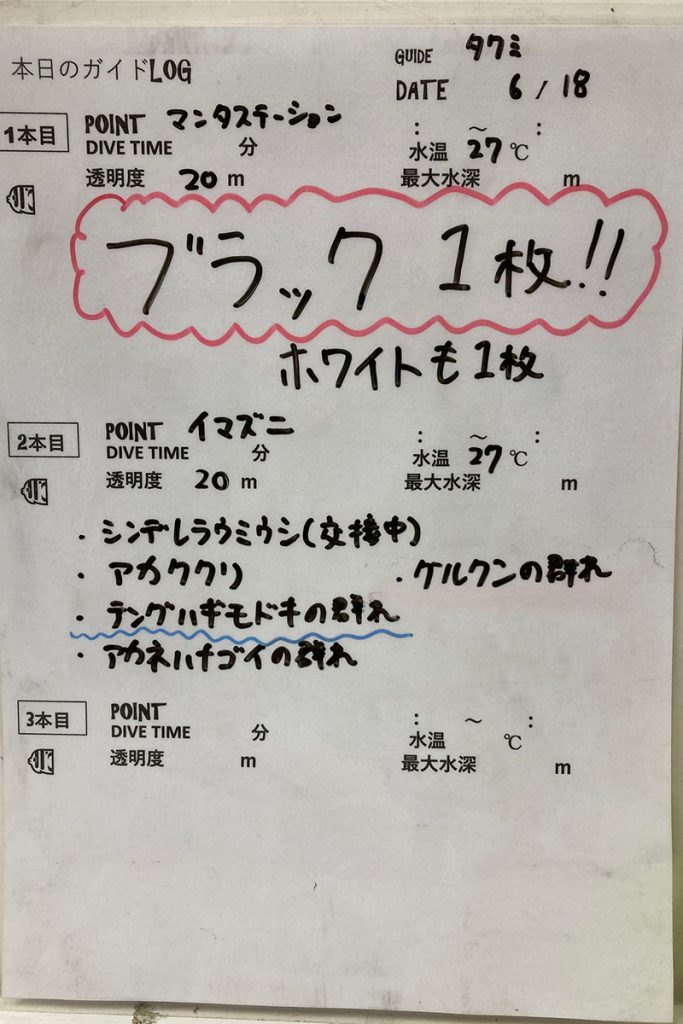 本日のガイドLOG
GUIDE タクミ
DATE 6 / 18
1本目 POINT マンタステーション : ～ :
DIVE TIME 分 水温 27℃
透明度 20 m 最大水深 m
ブラック 1枚!!
ホワイトも1枚
2本目 POINT イマズニ : ～ :
DIVE TIME 分 水温 27℃
透明度 20 m 最大水深 m
・シンデレラウミウシ(交接中)
・アカククリ ・ケルクンの群れ
・テングハギモドキの群れ
・アカネハナゴイの群れ
3本目 POINT : ～ :
DIVE TIME 分 水温 ℃
透明度 m 最大水深 m